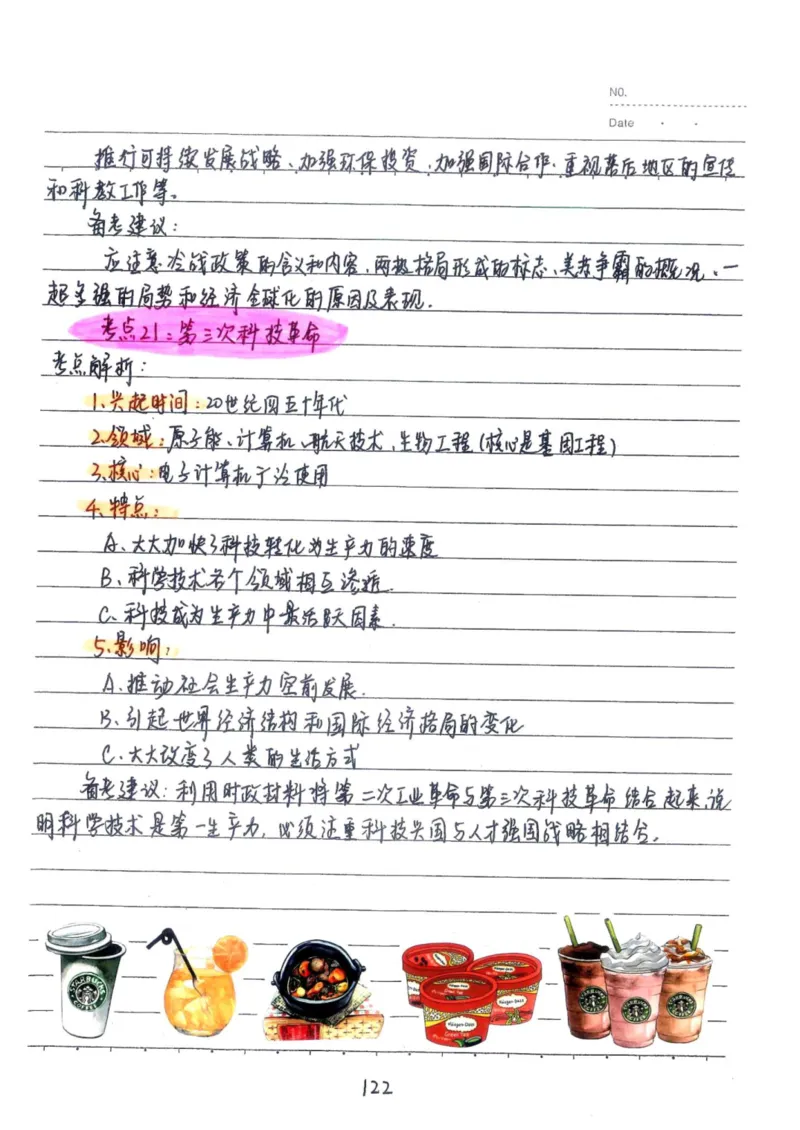 NO.
Date
推行可持续发展战略、加强环保投资、加强国际合作、重视落后地区的宣传
和科教工作等。
备考建议：
应注意冷战政策的含义和内容、两极格局形成的标志、美苏争霸的概况、一
超多强的局势和经济全球化的原因及表现.
考点21：第三次科技革命
考点解析：
1、兴起时间：20世纪四五十年代
2、领域：原子能、计算机、航天技术、生物工程(核心是基因工程)
3、核心：电子计算机广泛使用
4、特点：
A、大大加快了科技转化为生产力的速度
B、科学技术各个领域相互渗透.
C、科技成为生产力中最活跃因素.
5、影响：
A、推动社会生产力空前发展.
B、引起世界经济结构和国际经济格局的变化
C、大大改变了人类的生活方式
备考建议：利用时政材料将第二次工业革命与第三次科技革命结合起来，说
明科学技术是第一生产力，必须注重科技兴国与人才强国战略相结合。
STARBUCKS COFFEE
Häagen-Dazs
Häagen-Dazs
Häagen-Dazs
Green Tea
122